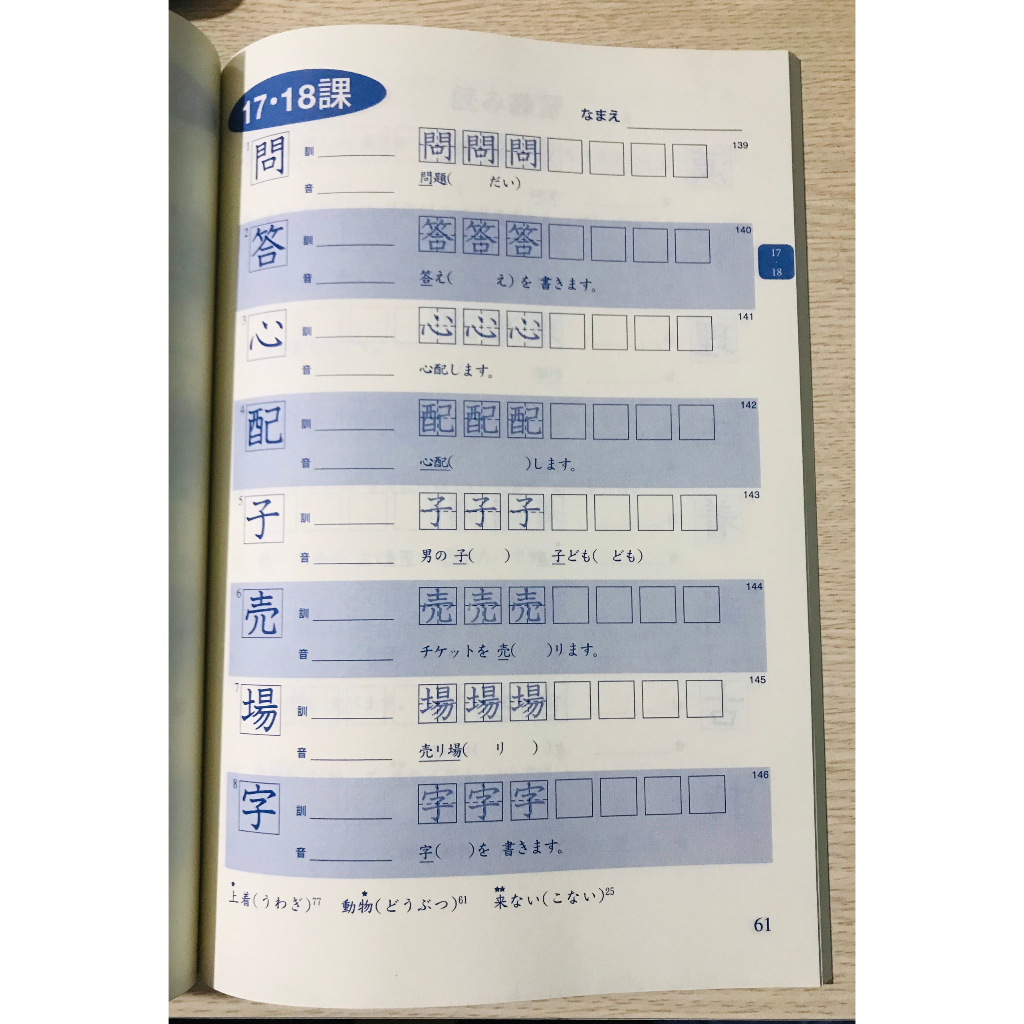 17・18課
なまえ
1 問 訓 問 問 問 139
音 問題( だい)
2 答 訓 答 答 答 140
音 答え( え)を 書きます。
17・18
3 心 訓 心 心 心 141
音 心配します。
4 配 訓 配 配 配 142
音 心配( )します。
5 子 訓 子 子 子 143
音 男の 子( ) 子ども( ども)
6 売 訓 売 売 売 144
音 チケットを 売( )ります。
7 場 訓 場 場 場 145
音 売り場( り )
8 字 訓 字 字 字 146
音 字( )を 書きます。
上着(うわぎ)77 動物(どうぶつ)61 来ない(こない)25
61